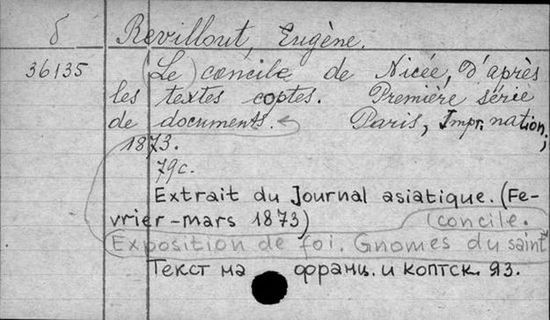 б Revillout, Eugène.
36135 (Le) concile de Nicée, d'après
les textes coptes. Première série
de documents. Paris, Impr. nation.,
1873.
79с.
Extrait du Journal asiatique. (Fe-
vrier-mars 1873)
concile.
Exposition de foi. Gnomes du saint
Текст на франц. и коптск. яз.